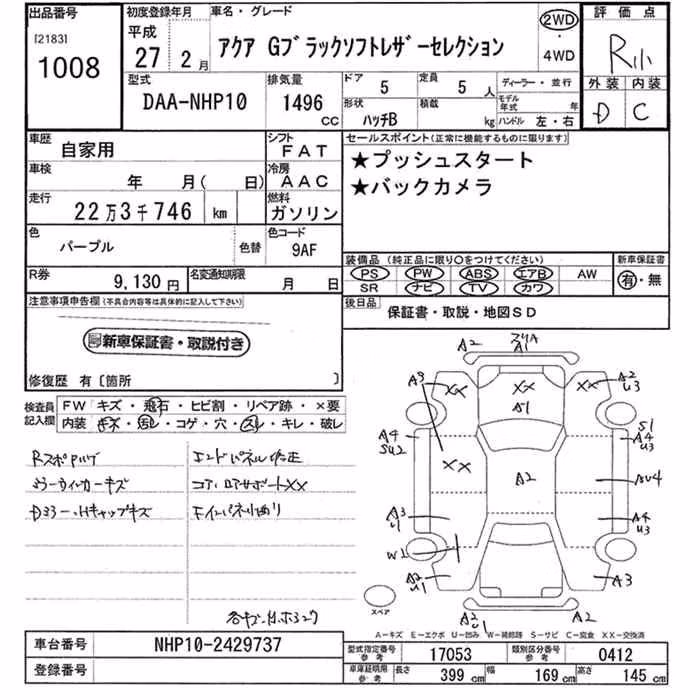 出品番号
[2183]
1008
初度登録年月
平成
27年 2月
車名・グレード
アクア Gブラックソフトレザーセレクション
2WD
・
4WD
評価点
R
外装 内装
D C
型式
DAA-NHP10
排気量
1496
CC
ドア 5
定員 5 人
形状 ハッチB
積載 kg
ディーラー・並行
モデル年式 年
ハンドル 左・右
車歴
自家用
シフト
FAT
車検
年 月( 日)
冷房
AAC
走行
22万3千746 km
燃料
ガソリン
色
パープル
色替
色コード
9AF
R券
9,130 円
名変通知期限
月 日
セールスポイント(正常に機能するものに限ります)
★プッシュスタート
★バックカメラ
装備品(純正品に限り○をつけてください)
PS PW ABS エアB AW
SR ナビ TV カワ
新車保証書
有・無
後日品
保証書・取説・地図SD
注意事項申告欄(不具合内容等は具体的に記入して下さい)
新車保証書・取説付き
修復歴 有[箇所 ]
検査員
記入欄
FW キズ・飛石・ヒビ割・リペア跡・×要
内装 キズ・汚レ・コゲ・穴・スレ・キレ・破レ
エンドパネル修正
コアロアサポートXX
A2
A1
A3
XX
XX
XX
A2
U3
S1
S1
A4
U3
A4
SU2
XX
A2
A3
U1
A4
U3
A2
U1
A3
A2
U1
A2
スペア
A−キズ E−エクボ U−凹み W−補修跡 S−サビ C−腐食 XX−交換済
車台番号
NHP10-2429737
登録番号
型式指定番号
参考
17053
類別区分番号
参考
0412
車庫証明用
参考
長さ 399 cm
幅 169 cm
高さ 145 cm